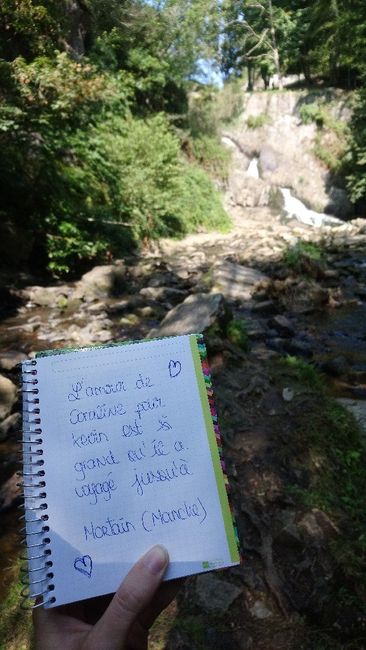 L'amour de
Coraline pour
kevin est si
grand qu'il a
voyagé jusqu'à
Mortain (Manche)